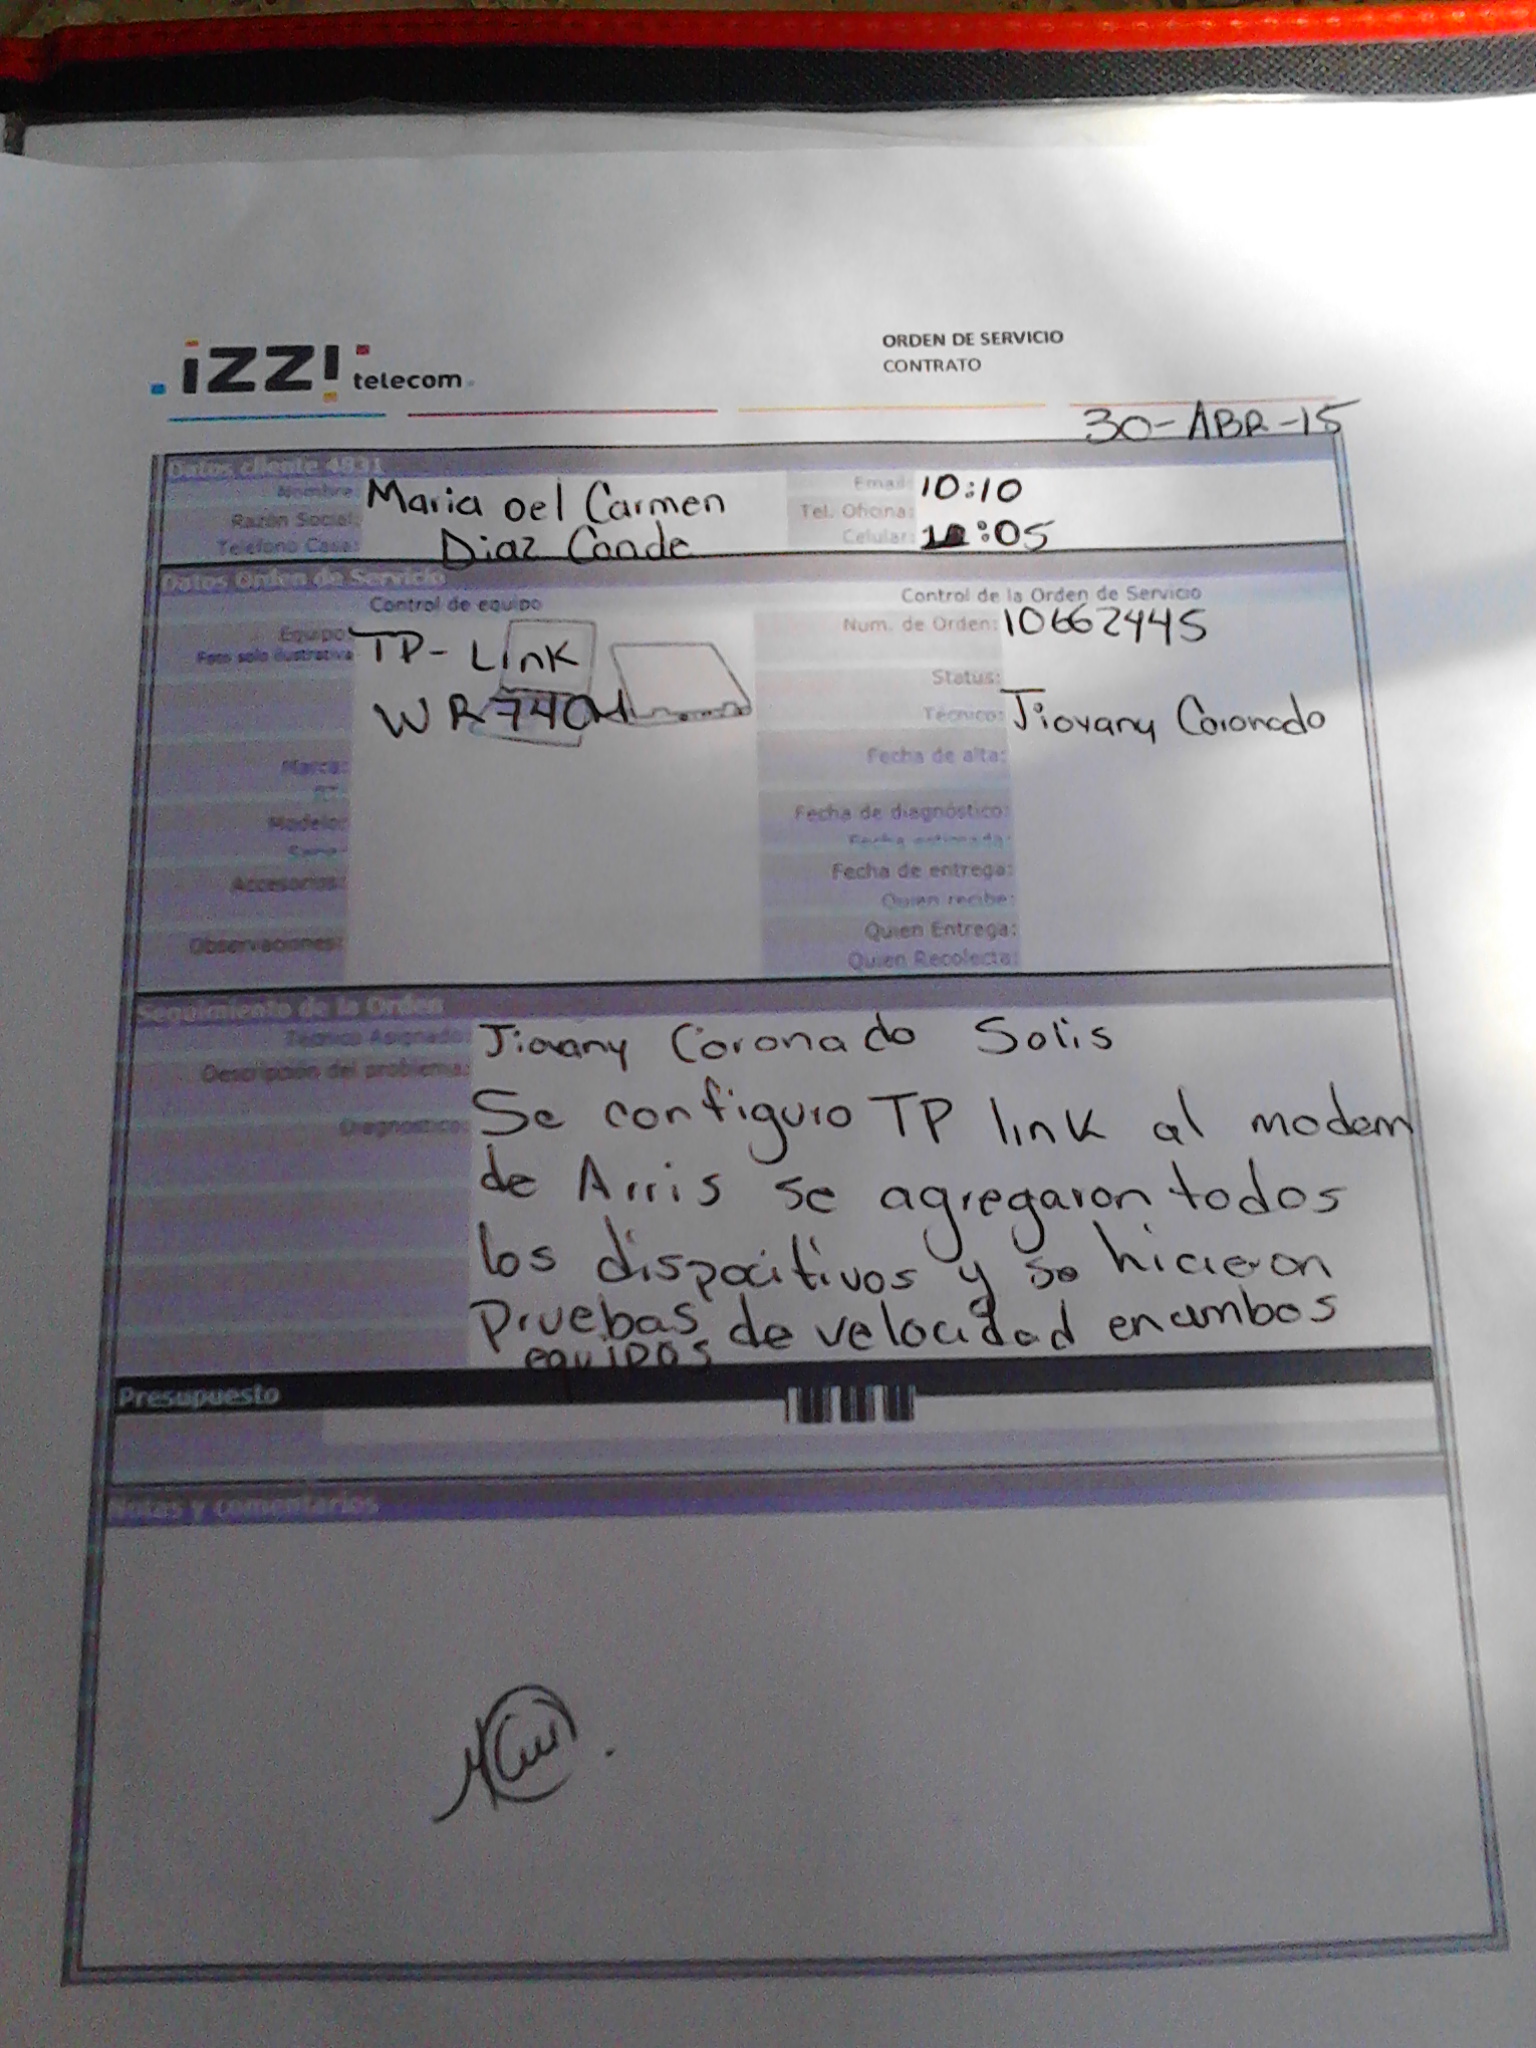 izzi telecom
ORDEN DE SERVICIO
CONTRATO
30-ABR-15
Datos cliente 4831
Nombre: Maria del Carmen
Razón Social:
Teléfono Casa: Diaz Conde
Email: 10:10
Tel. Oficina:
Celular: :05
Datos Orden de Servicio
Control de equipo
Equipo: TP-Link
Foto solo ilustrativa
WR740N
Marca:
Modelo:
Serie:
Accesorios:
Observaciones:
Control de la Orden de Servicio
Num. de Orden: 10662445
Status:
Técnico: Jiovany Coronado
Fecha de alta:
Fecha de diagnóstico:
Fecha estimada:
Fecha de entrega:
Quien recibe:
Quien Entrega:
Quien Recolecta:
Seguimiento de la Orden
Técnico Asignado: Jiovany Coronado Solis
Descripción del problema:
Diagnóstico: Se configuro TP link al modem
de Arris se agregaron todos
los dispocitivos y se hicieron
Pruebas de velocidad en ambos
equipos
Presupuesto
Notas y comentarios